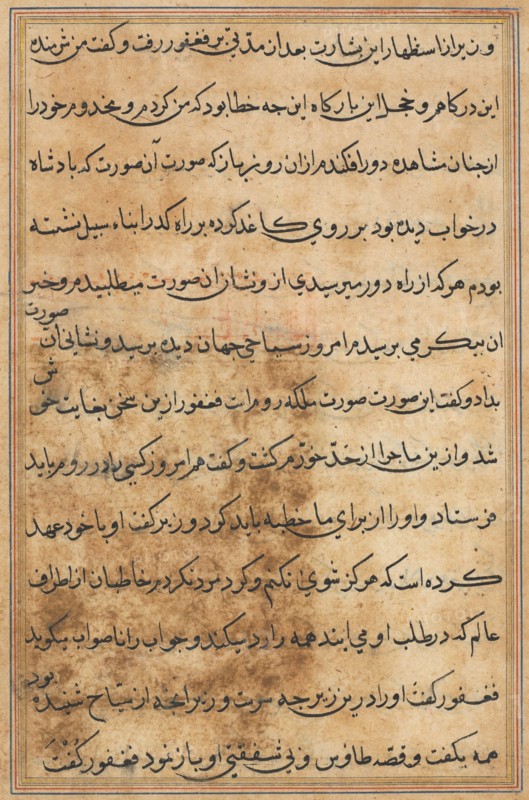 وزیر از استظهار این بشارت بعد از مدتی بر فغفور رفت و گفت من شرمنده
این درکاهم و خجل این بارکاه این چه خطا بود که من کردم و مخدوم خود را
از چنان مشاهده دور افکندم از ان روز باز که صورت آن صورت که بادشاه
در خواب دیده بود بر روی کاغذ کرده بر راه کذر ابناء سبیل نشسته
بودم هر که از راه دور میرسیدی ازو نشان ان صورت میطلبیدم و خبر
ان بیکر می برسیدم امروز سیاحی جهان دیده برسید و نشانی آن صورت
بداد و کفت این صورت صورت ملکه روم است فغفور ازین سخن بغایت خوش
شد و ازین ماجرا از حد خرم کشت و کفت هم امروز کسی را در روم باید
فرستاد و او را از برای ما خطبه باید کرد وزیر کفت او با خود عهد
کرده است که هرکز شوی نکنم و کرد مرد نکردم خاطبان از اطراف
عالم که در طلب او می ایند همه را رد میکند و جواب را ناصواب میکوید
فغفور کفت او را درین زیر چه سرست وزیر انچه از سیاح شنیده بود
همه بکفت و قصه طاوس و بی شفقتی او باز نمود فغفور کُفْتَ